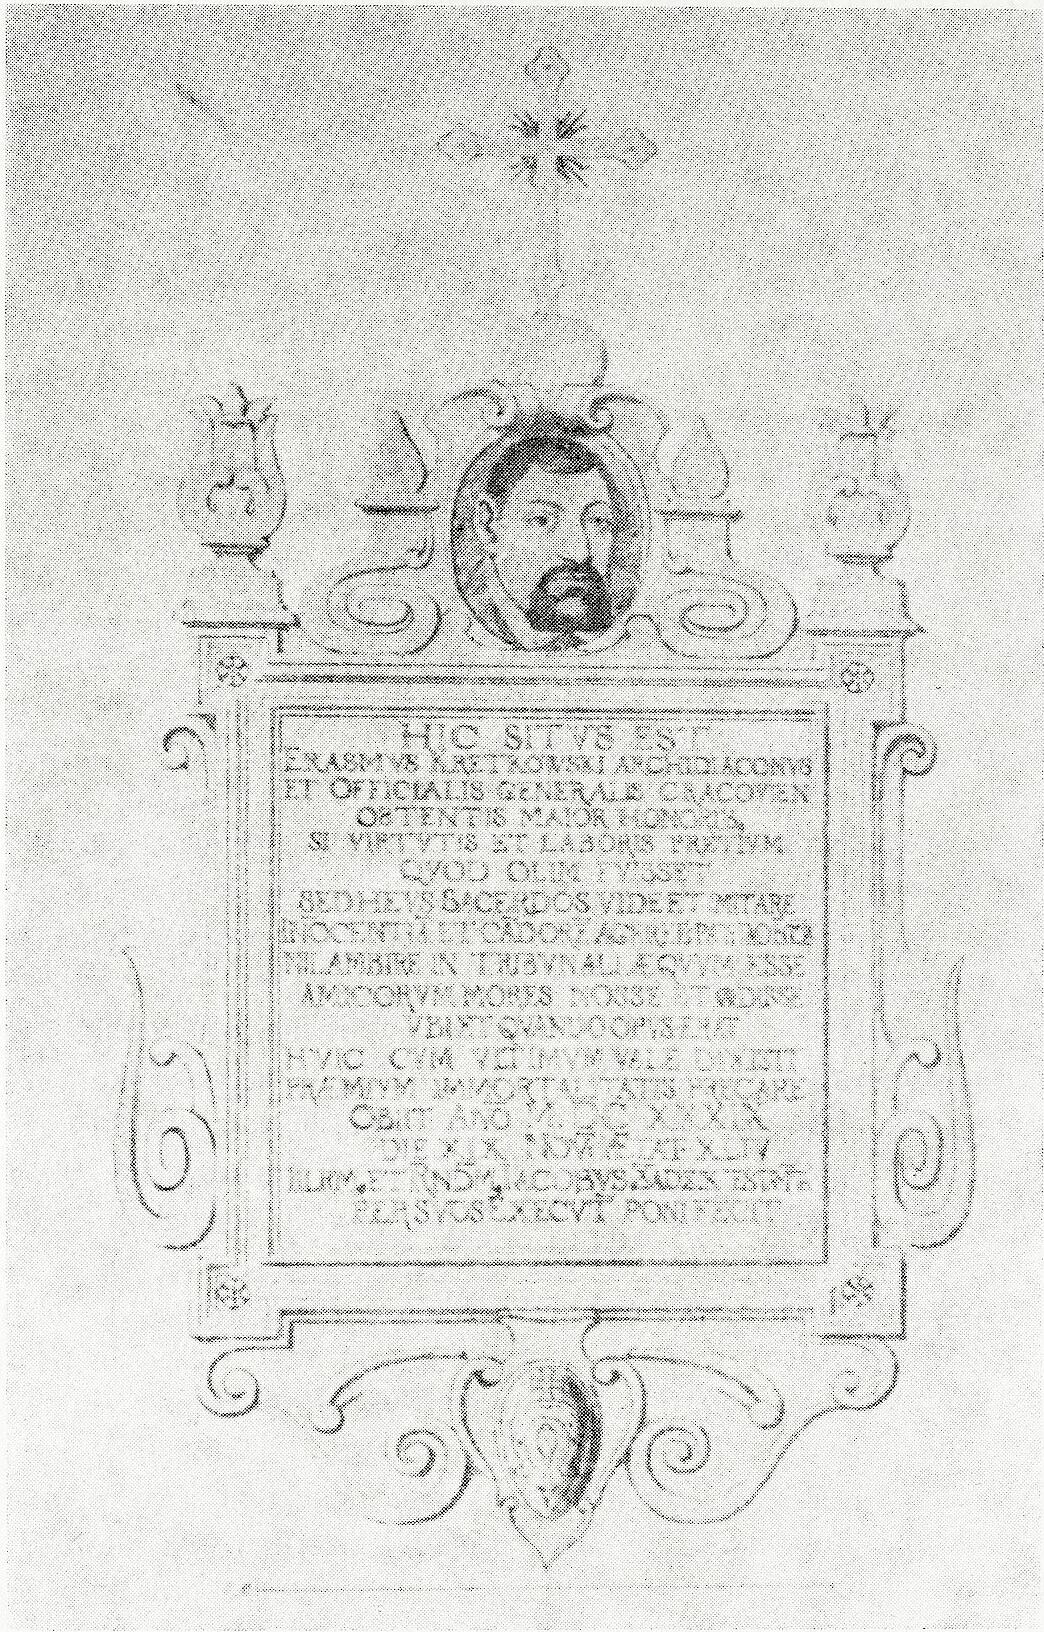 HIC SITVS EST
ERASMVS KRETKOWSKI ARCHIDIACONVS
ET OFFICIALIS GENERALIS CRACOVIEN
OBTENTIS MAIOR HONORIS
SI VIRTVTIS ET LABORIS PRETIVM
QVOD OLIM FVISSET
SED HEVS SACERDOS VIDE ET
ET
AMBIRE IN TRIBVNALI ÆQVVM ESSE
AMICORVM MORES NOSSE ET
VBI ET QVANDO OPVS ERIT
HVIC CVM VLTIMVM VALE DIXETI
PRÆMIVM IMMORTALITATIS PRECARE
OBIIT ANO M DC XXXIX
DIE XIX NOV ÆTAT XLIV
ET RNDM IACOBVS ZADZIK
PER SVOS EXECVT PONI FECIT